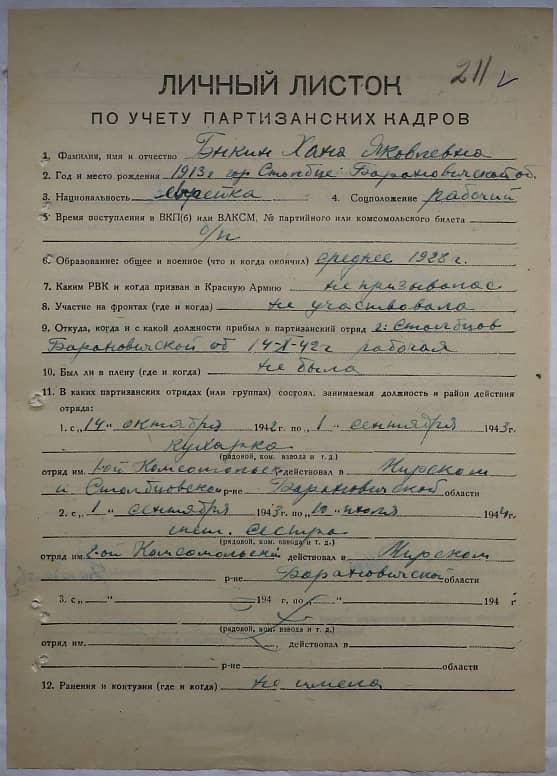 211
ЛИЧНЫЙ ЛИСТОК
ПО УЧЕТУ ПАРТИЗАНСКИХ КАДРОВ
1. Фамилия, имя и отчество Хана Яковлевна
2. Год и место рождения 1913 г гор Столбце: Барановичской об.
3. Национальность еврейка 4. Соцположение рабочий
5. Время поступления в ВКП(б) или ВЛКСМ, № партийного или комсомольского билета
б/п
6. Образование: общее и военное (что и когда окончил) среднее 1928 г.
7. Каким РВК и когда призван в Красную Армию не призывалас
8. Участие на фронтах (где и когда) не участвовала
9. Откуда, когда и с какой должности прибыл в партизанский отряд г: Столбцов
Барановичской об 14-X-42 г рабочая
10. Был ли в плену (где и когда) не была
11. В каких партизанских отрядах (или группах) состоял, занимаемая должность и район действия
отряда:
1. с „14" октября 1942 г. по „1" сентября 1943 г.
кухарка
(рядовой, ком. взвода и т. д.)
отряд им. 1-ой Комсомольск действовал в Мирском
и Столбцовско р-не Барановичской области
2. с „1" сентября 1943 г. по „10" июля 1944 г.
сестра
(рядовой, ком. взвода и т. д.)
отряд им. 2-ой Комсомольский действовал в Мирском
р-не Барановичской области
3. с „ " 194 г. по „ " 194 г
(рядовой, ком. взвода и т. д.)
отряд им. , действовал в
р-не области
12. Ранения и контузии (где и когда) не имела